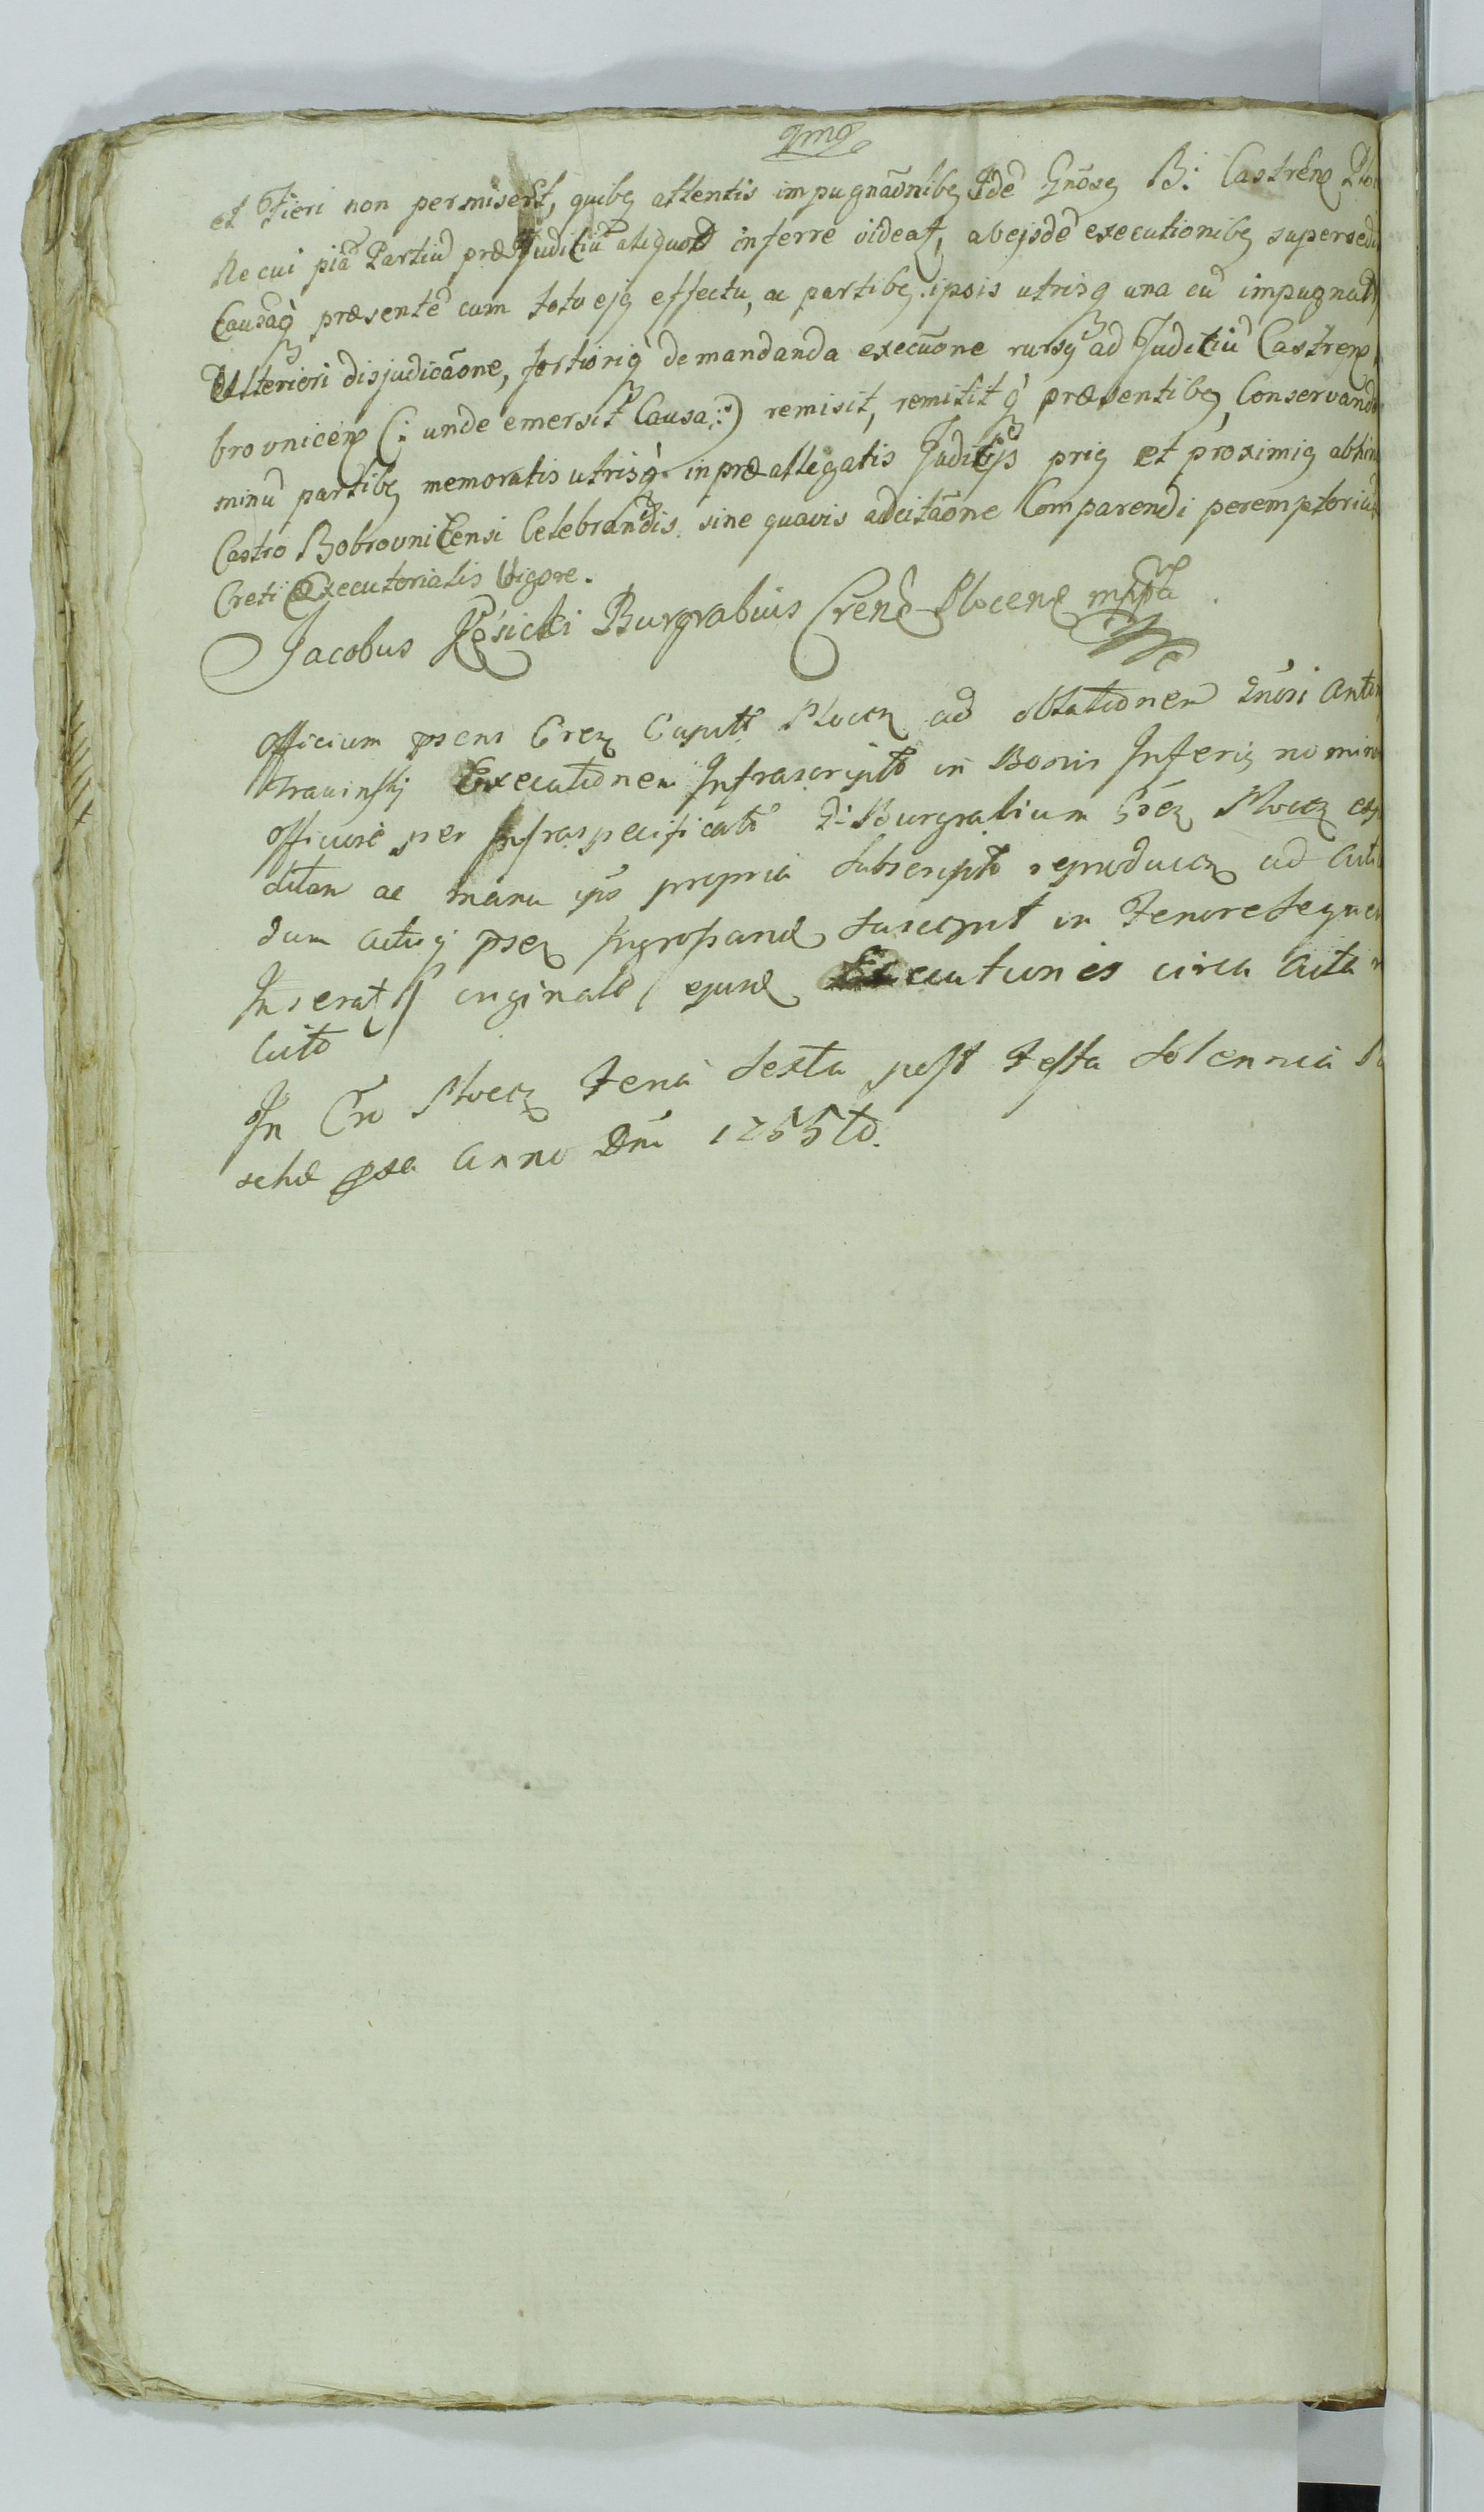 et Fieri non permiserit, quibq attentis impugnãonibq Idē Gnõsq B: Castrēn Plo
Ne cui piā Partiū præJuditiū aliquod inferre videat, ab ejsdē executionibq supersedi
Causāq præsentē cum toto ejq effectu, ac partibq ipsis utrisq una cū impugnaõ
Ulteriori disjudicãone, fortiorīq demandanda execuõne rursq ad Juditiū Castren
brovnicēn (: unde emersit Causa :) remisit, remitit q præsentibq Conservando
minū partibq memoratis utrisq in præallegatis Juditijs priq et proximiq abhin
Castro Bobrovnitensi Celebrandis sine quavis adcitãone Comparendi peremptoriū
Creti Executorialis Vigore.
Jacobus Kęsicki Burgrabius Crens Plocens mppa
Officium psens Cren Capitt Plocen ad oblationem Gnosi Anto
Trawinskj Executionem Infrascripto in Bonis Inferiq nomin
officiose per Infraspecificatō G: Burgrabium Cren Plocen exp
ditam ac manu ips propria Subscripto reproducen ad Acti
dum Actisq psen Ingrossand Suscepit in Tenore Sequen
Inserat originale ejusd Executionis circa Acta
Acto
In Cro Plocen Feria Sexta post Festa Solennia
schæ pxa Anno Dni 1755to.